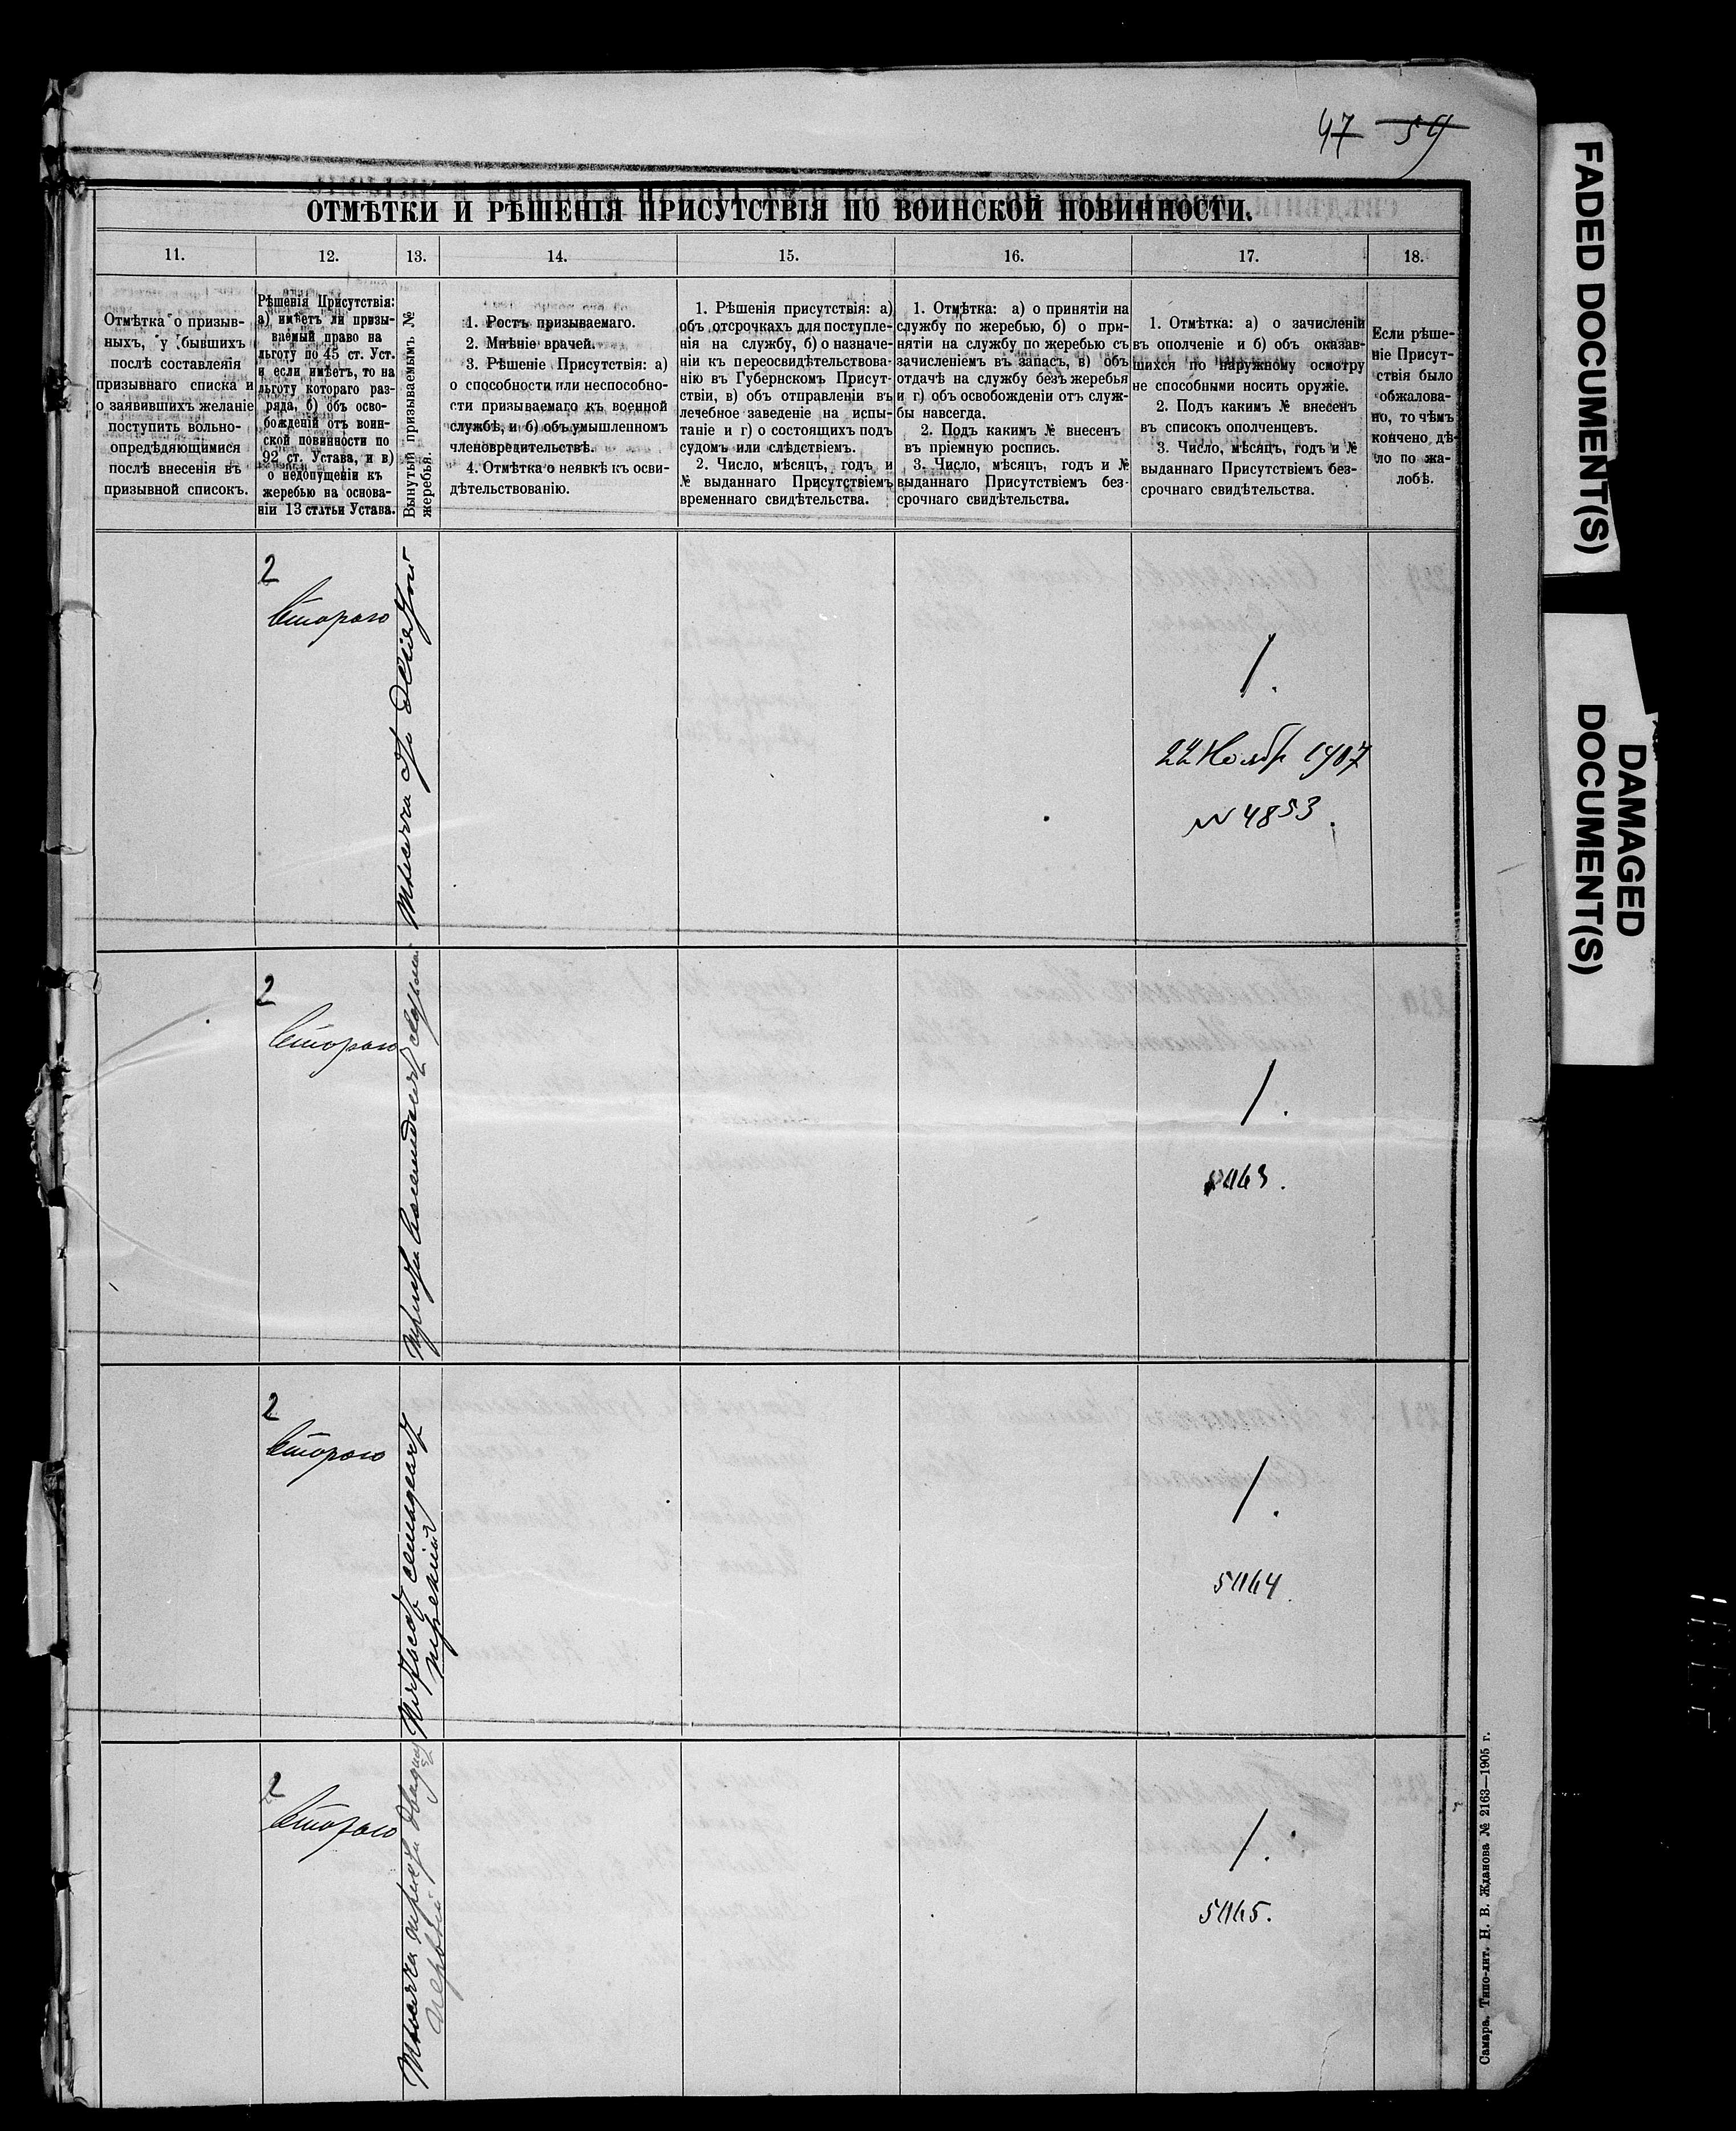 47 54
FADED DOCUMENT(S)
DAMAGED
DOCUMENT(S)
ОТМѢТКИ И РѢШЕНІЯ ПРИСУТСТВІЯ ПО ВОИНСКОЙ ПОВИННОСТИ.
11.
12.
13.
14.
15.
16.
17.
18.
Отмѣтка о призыв-
ныхъ, у бывшихъ
послѣ составленія
призывнаго списка и
о заявившихъ желаніе
поступить вольно-
опредѣляющимися
послѣ внесенія въ
призывной списокъ.
Рѣшенія Присутствія:
а) имѣетъ ли призы-
ваемый право на
льготу по 45 ст. Уст.
и если имѣетъ, то на
льготу котораго раз-
ряда, б) объ осво-
божденіи отъ воин-
ской повинности по
92 ст. Устава, и в)
о недопущеніи къ
жеребью на основа-
ніи 13 статьи Устава.
Вынутый призываемымъ №
жеребья.
1. Ростъ призываемаго.
2. Мнѣніе врачей.
3. Рѣшеніе Присутствія: а)
о способности или неспособно-
сти призываемаго къ военной
службѣ, и б) объ умышленномъ
членовредительствѣ.
4. Отмѣтка о неявкѣ къ осви-
дѣтельствованію.
1. Рѣшенія присутствія: а)
объ отсрочкахъ для поступле-
нія на службу, б) о назначе-
ніи къ переосвидѣтельствова-
нію въ Губернскомъ Присут-
ствіи, в) объ отправленіи въ
лечебное заведеніе на испы-
таніе и г) о состоящихъ подъ
судомъ или слѣдствіемъ.
2. Число, мѣсяцъ, годъ и
№ выданнаго Присутствіемъ
временнаго свидѣтельства.
1. Отмѣтка: а) о принятіи на
службу по жеребью, б) о при-
нятіи на службу по жеребью съ
зачисленіемъ въ запасъ, в) объ
отдачѣ на службу безъ жеребья
и г) объ освобожденіи отъ служ-
бы навсегда.
2. Подъ какимъ № внесенъ
въ пріемную роспись.
3. Число, мѣсяцъ, годъ и №
выданнаго Присутствіемъ без-
срочнаго свидѣтельства.
1. Отмѣтка: а) о зачисленіи
въ ополченіе и б) объ оказав-
шихся по наружному осмотру
не способными носить оружіе.
2. Подъ какимъ № внесенъ
въ списокъ ополченцевъ.
3. Число, мѣсяцъ, годъ и №
выданнаго Присутствіемъ без-
срочнаго свидѣтельства.
Если рѣше-
ніе Присут-
ствія было
обжалова-
но, то чѣмъ
кончено дѣ-
ло по жа-
лобѣ.
2
Второго
Тысяча
1.
22 Ноябр 1907
№ 4853.
2
Второго
Триста восемдесятъ
1.
2
Второго
Пятьсотъ семьдесятъ
третій
1.
5064.
2
Второго
Тысяча триста двадцать
первый
1.
5065.
Самара. Типо-лит. Н. В. Жданова № 2163—1905 г.